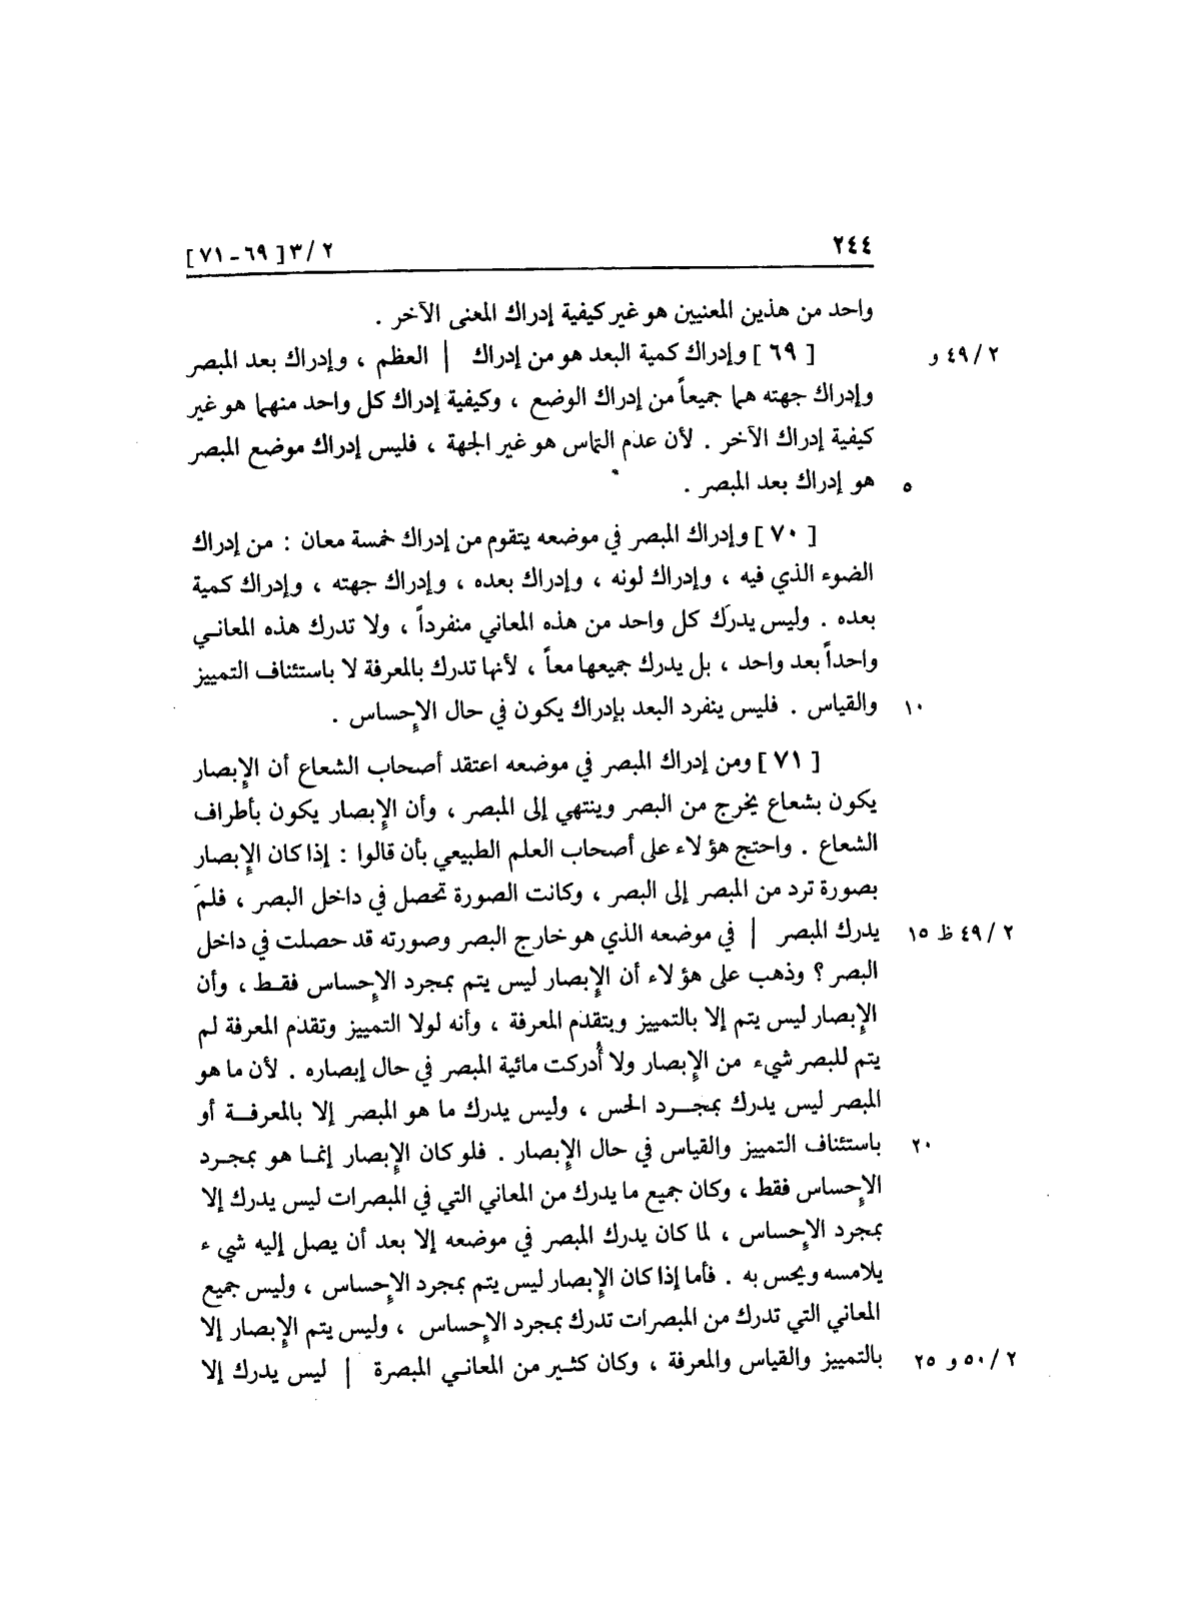 ٢٤٤
٢/٣[٦٩-٧١]
واحد من هذين المعنيين هو غير كيفية إدراك المعنى الآخر .
٢/٤٩ و [٦٩] وإدراك كمية البعد هو من إدراك | العظم ، وإدراك بعد المبصر
وإدراك جهته هما جميعاً من إدراك الوضع ، وكيفية إدراك كل واحد منهما هو غير
كيفية إدراك الآخر . لأن عدم التماس هو غير الجهة ، فليس إدراك موضع المبصر
٥ هو إدراك بعد المبصر .
[٧٠] وإدراك المبصر في موضعه يتقوم من إدراك خمسة معان : من إدراك
الضوء الذي فيه ، وإدراك لونه ، وإدراك بعده ، وإدراك جهته ، وإدراك كمية
بعده . وليس يدرَك كل واحد من هذه المعاني منفرداً ، ولا تدرك هذه المعاني
واحداً بعد واحد ، بل يدرك جميعها معاً ، لأنها تدرك بالمعرفة لا باستئناف التمييز
١٠ والقياس . فليس ينفرد البعد بإدراك يكون في حال الإحساس .
[٧١] ومن إدراك المبصر في موضعه اعتقد أصحاب الشعاع أن الإبصار
يكون بشعاع يخرج من البصر وينتهي إلى المبصر ، وأن الإبصار يكون بأطراف
الشعاع . واحتج هؤلاء على أصحاب العلم الطبيعي بأن قالوا : إذا كان الإبصار
بصورة ترد من المبصر إلى البصر ، وكانت الصورة تحصل في داخل البصر ، فلمَ
٢/٤٩ ظ ١٥ يدرك المبصر | في موضعه الذي هو خارج البصر وصورته قد حصلت في داخل
البصر ؟ وذهب على هؤلاء أن الإبصار ليس يتم بمجرد الإحساس فقط ، وأن
الإبصار ليس يتم إلا بالتمييز وبتقدم المعرفة ، وأنه لولا التمييز وتقدم المعرفة لم
يتم للبصر شيء من الإبصار ولا أُدركت مائية المبصر في حال إبصاره . لأن ما هو
المبصر ليس يدرك بمجرد الحس ، وليس يدرك ما هو المبصر إلا بالمعرفة أو
٢٠ باستئناف التمييز والقياس في حال الإبصار . فلو كان الإبصار إنما هو بمجرد
الإحساس فقط ، وكان جميع ما يدرك من المعاني التي في المبصرات ليس يدرك إلا
بمجرد الإحساس ، لما كان يدرك المبصر في موضعه إلا بعد أن يصل إليه شيء
يلامسه ويحس به . فأما إذا كان الإبصار ليس يتم بمجرد الإحساس ، وليس جميع
المعاني التي تدرك من المبصرات تدرك بمجرد الإحساس ، وليس يتم الإبصار إلا
٢/٥٠ و ٢٥ بالتمييز والقياس والمعرفة ، وكان كثير من المعاني المبصرة | ليس يدرك إلا